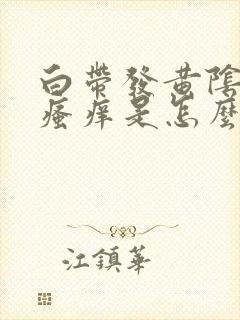 白帶發黃陰
瘙痒是怎麼
江鎮華